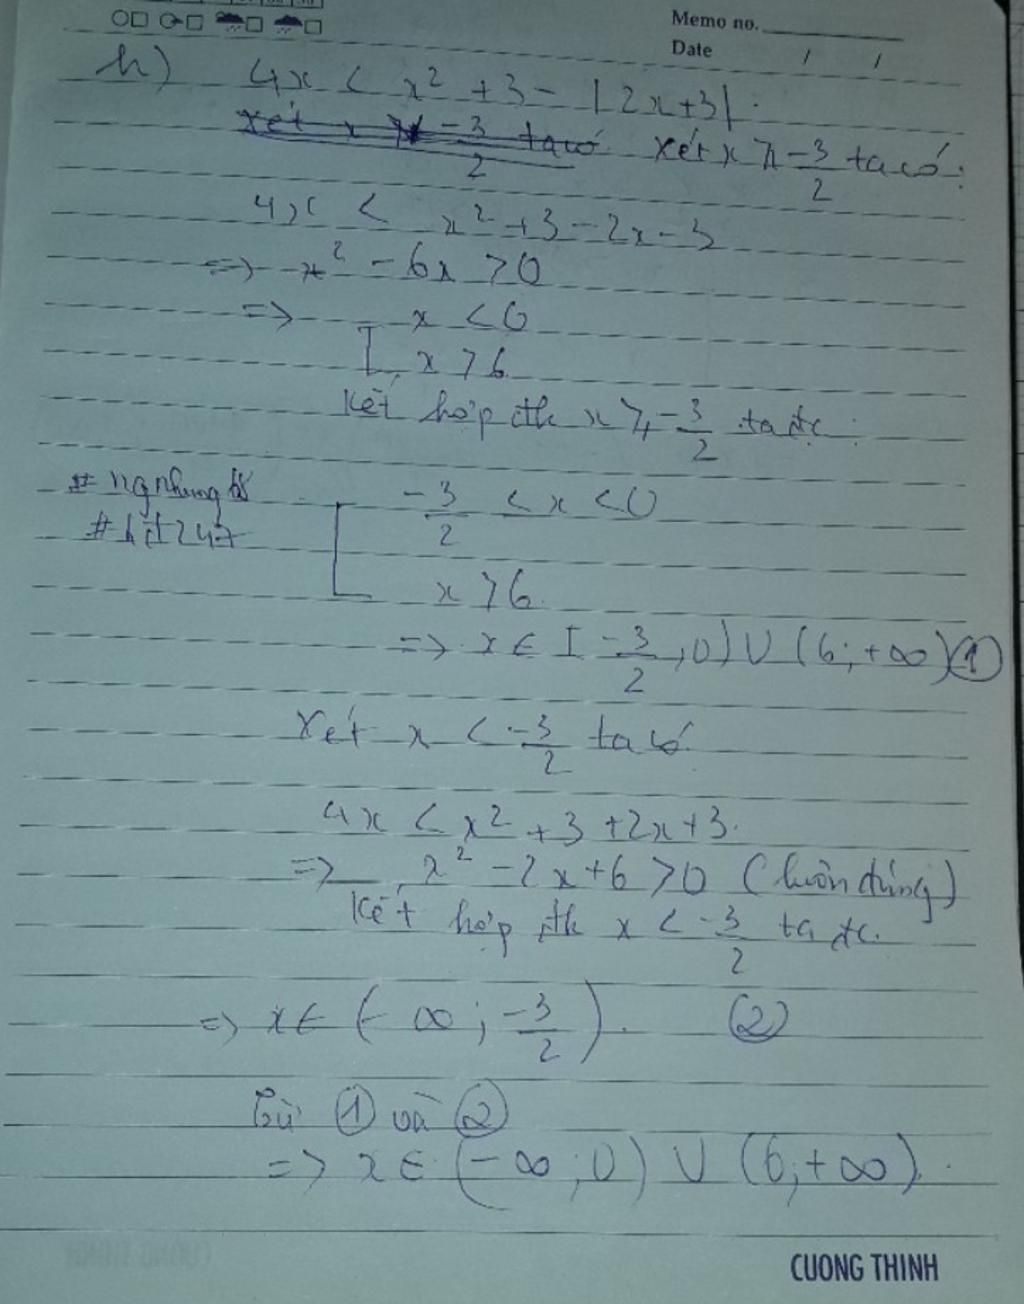 Memo no.
Date / /
h) 4x < x² + 3 - |2x+3|.
xét x ≥ -3/2 ta có xét x ≥ -3/2 ta có:
4x < x² + 3 - 2x - 3
=> x² - 6x > 0
=> [ x < 0
x > 6
Kết hợp đk x ≥ -3/2 ta đc:
[ -3/2 < x < 0
x > 6
=> x ∈ [-3/2, 0) ∪ (6; +∞) ①
Xét x < -3/2 ta có
4x < x² + 3 + 2x + 3.
=> x² - 2x + 6 > 0 (luôn đúng)
Kết hợp đk x < -3/2 ta đc.
=> x ∈ (-∞; -3/2). ②
Từ ① và ②
=> x ∈ (-∞; 0) ∪ (6; +∞).
CUONG THINH